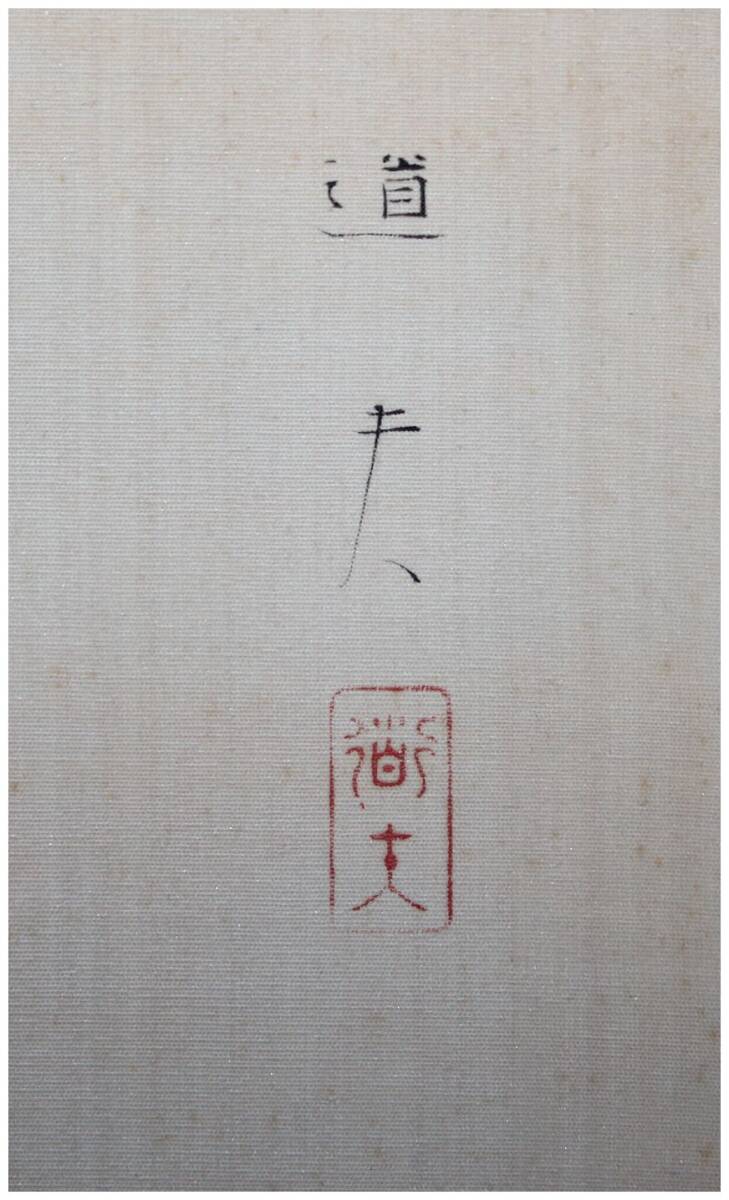 道夫
道夫